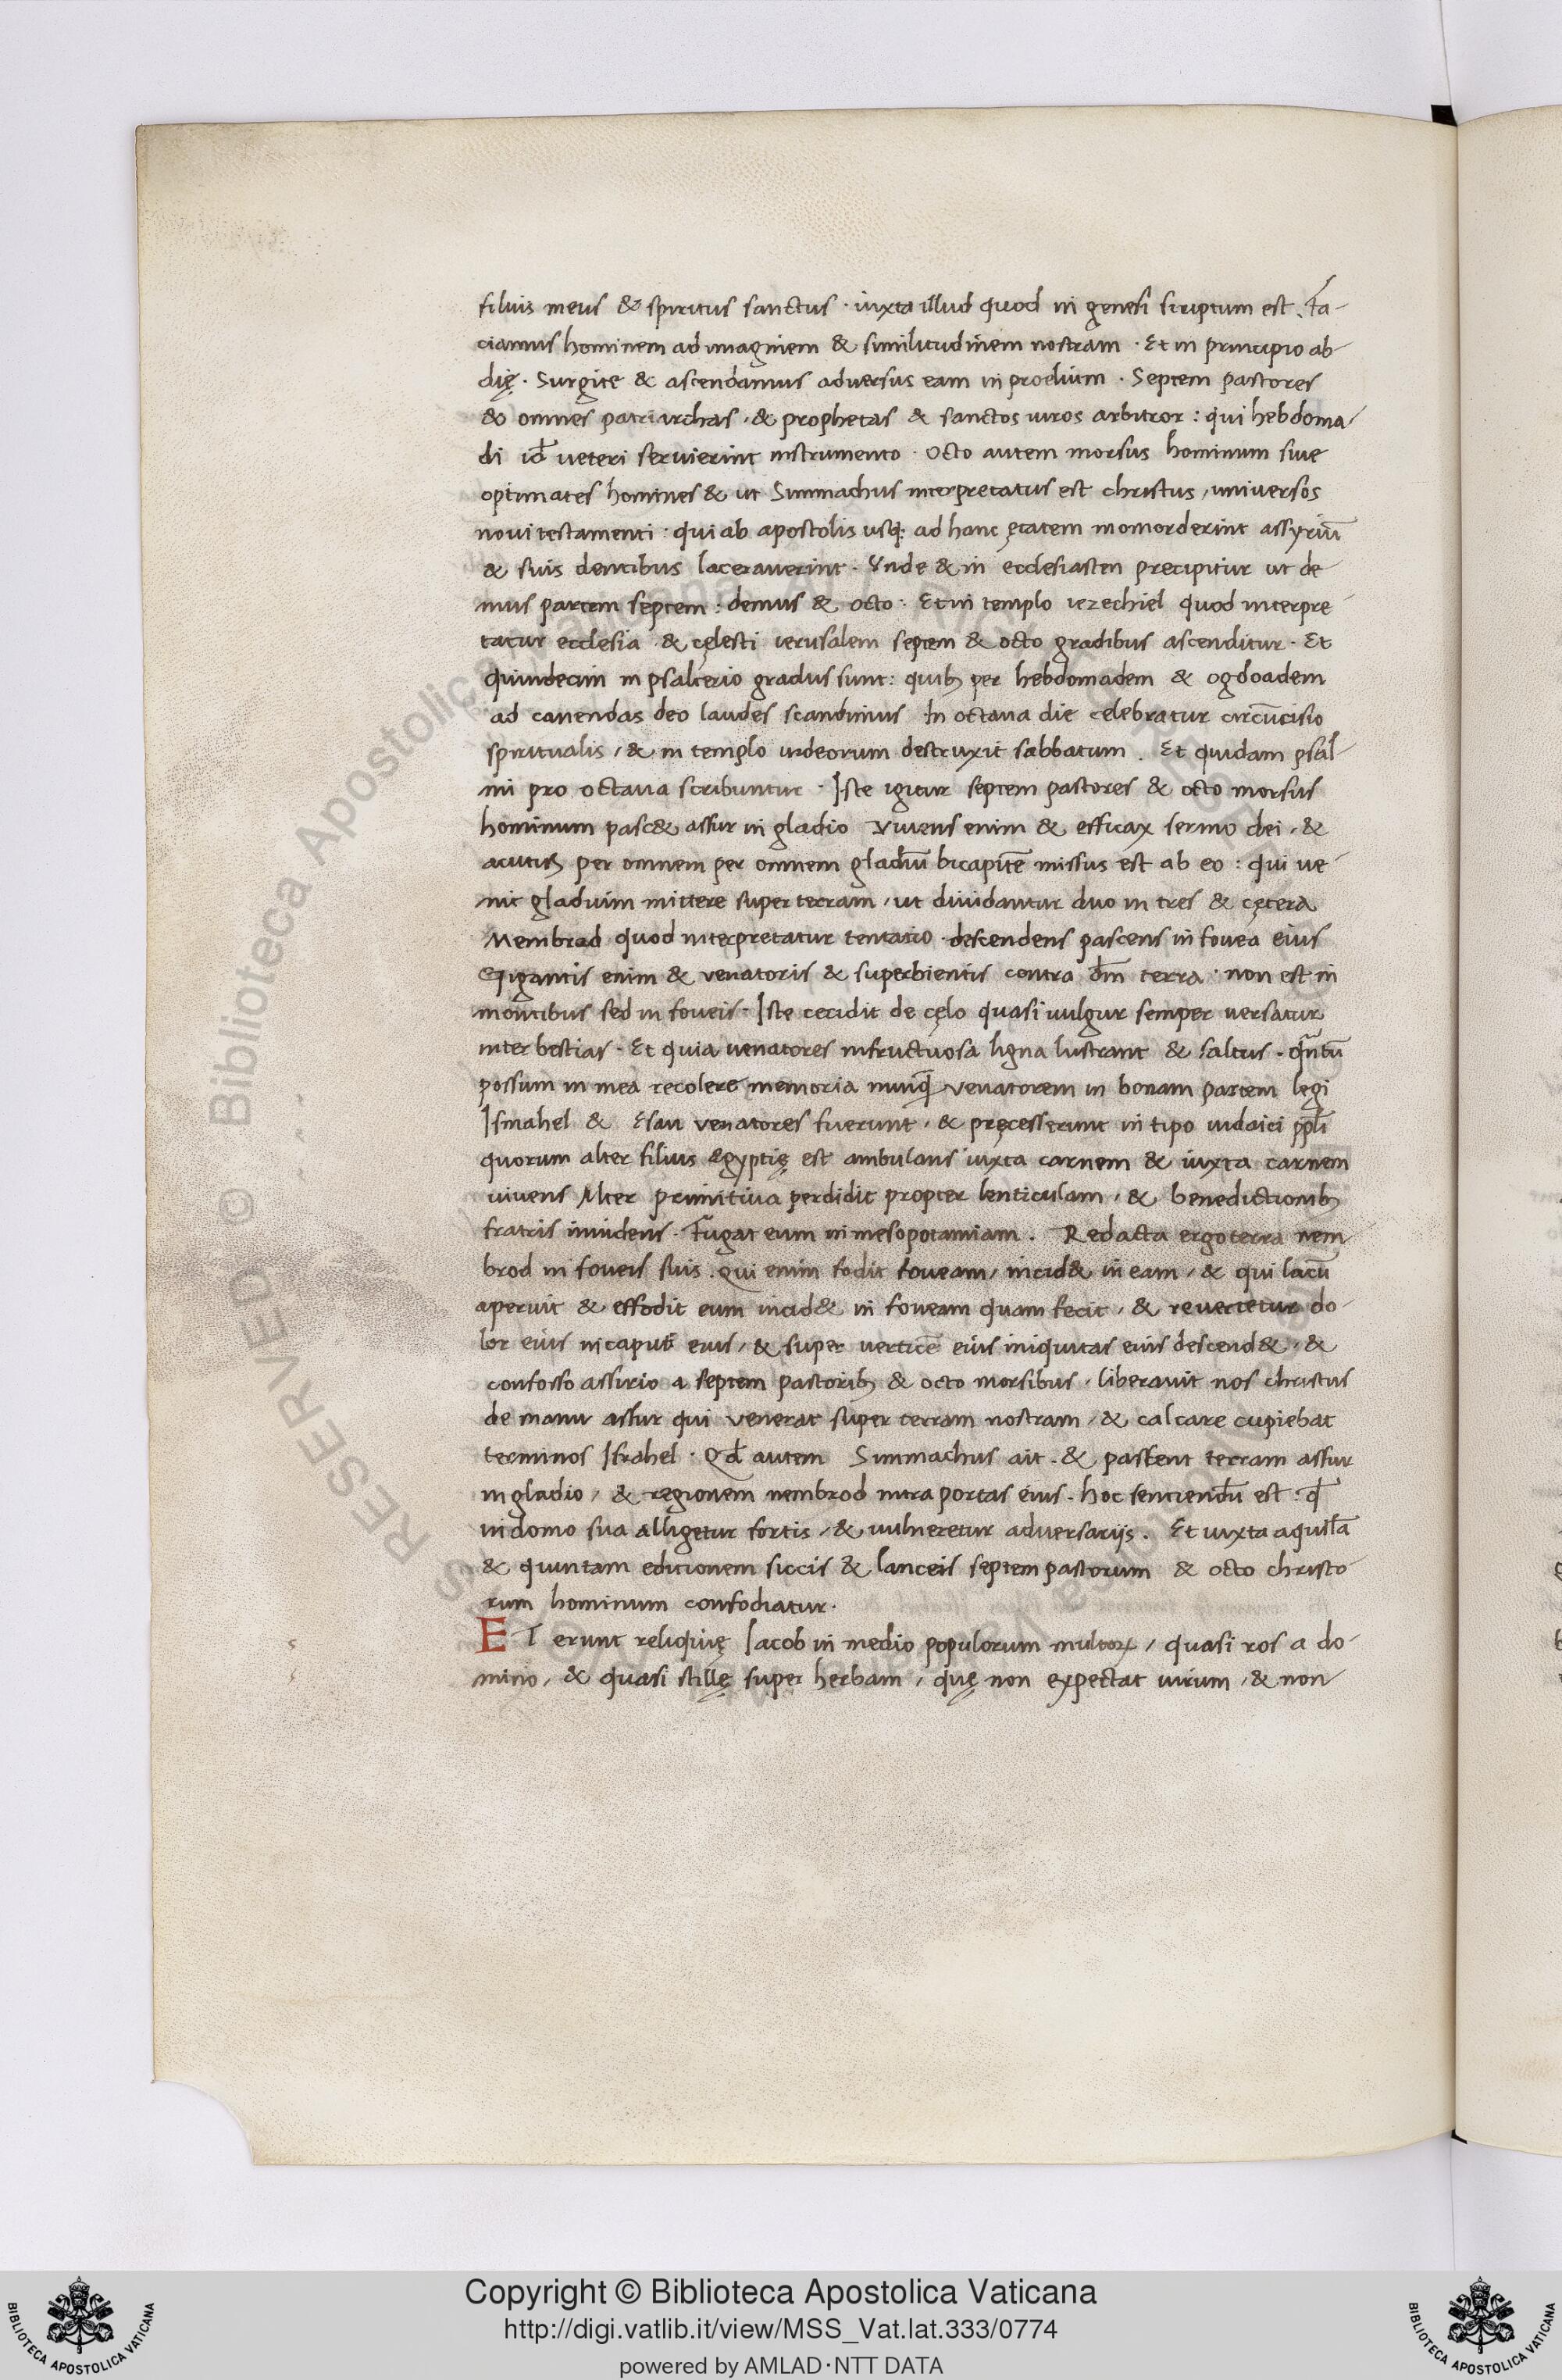 filius meus & spiritus sanctus · iuxta illud quod in genesi scriptum est . Fa-
ciamus hominem ad imaginem & similitudinem nostram · Et in principio ab
dię · Surgite & ascendamus adversus eam in proelium · Septem pastores
& omnes patriarchas · & prophetas & sanctos viros arbitror : qui hebdoma-
di id̄ veteri servierint instrumento · Octo autem morsus hominum sive
optimates homines & ut Simmachus interpretatus est christus , universos
novi testamenti : qui ab apostolis usq; ad hanc ętatem momorderint assyriū
& suis dentibus laceraverint · Unde & in ecclesiasten precipitur ut de
mus partem septem : demus & octo · Et in templo iezechiel quod interpre-
tatur ecclesia & cęlesti ierusalem septem & octo gradibus ascenditur · Et
quindecim in psalterio gradus sunt : quib; per hebdomadem & ogdoadem
ad canendas deo laudes scandimus In octava die celebratur circūcisio
spiritualis , & in templo iudeorum destruxit sabbatum . Et quidam psal-
mi pro octava scribuntur · Iste igitur septem pastores & octo morsus
hominum pasc& assur in gladio Vivens enim & efficax sermo dei , &
acutus per omnem per omnem gladiū bicapitē missus est ab eo : qui ve-
nit gladium mittere super terram , ut dividantur duo in tres & cętera
Membrad quod interpretatur tentatio · descendens pascens in fovea eius
Gigantis enim & venatoris & superbientis contra dm̄ terra · non est in
montibus sed in foveis · Iste cecidit de cęlo quasi vulgur semper versatur
inter bestias · Et quia venatores infructuosa ligna lustrant & saltus · q̄ntū
possum in mea recolere memoria nunq̄ venatorem in bonam partem legi
Ismahel & Esau venatores fuerunt , & pręcesserunt in tipo iudaici pp̄li
quorum alter filius ęgyptię est ambulans iuxta carnem & iuxta carnem
vivens Alter primitiva perdidit propter lenticulam , & benedictionib;
fratris invidens · Fugat eum in mesopotamiam . Redacta ergo terra nem
brod in foveis suis . Qui enim fodit foveam , incid& in eam , & qui lacū
aperuit & effodit eum incid& in foveam quam fecit , & revertetur do-
lor eius in caput eius , & super verticē eius iniquitas eius descend& , &
confosso assirio a septem pastorib; & octo morsibus , liberavit nos christus
de manu assur qui venerat super terram nostram , & calcare cupiebat
terminos Israhel · Qd̄ autem Simmachus ait . & pascent terram assur
in gladio , & regionem nembrod intra portas eius . hoc sentiendū est : q̄d
in domo sua alligetur fortis , & vulneretur adversarijs . Et iuxta aquilā
& quintam editionem siccis & lanceis septem pastorum & octo christo
rum hominum confodiatur ·
ET erunt reliquię Iacob in medio populorum multoꝝ , quasi ros a do-
mino , & quasi stillę super herbam , quę non expectat virum , & non
RESERVED © Biblioteca Apostolica Vaticana
Copyright © Biblioteca Apostolica Vaticana
http://digi.vatlib.it/view/MSS_Vat.lat.333/0774
powered by AMLAD·NTT DATA
BIBLIOTECA APOSTOLICA VATICANA
BIBLIOTECA APOSTOLICA VATICANA